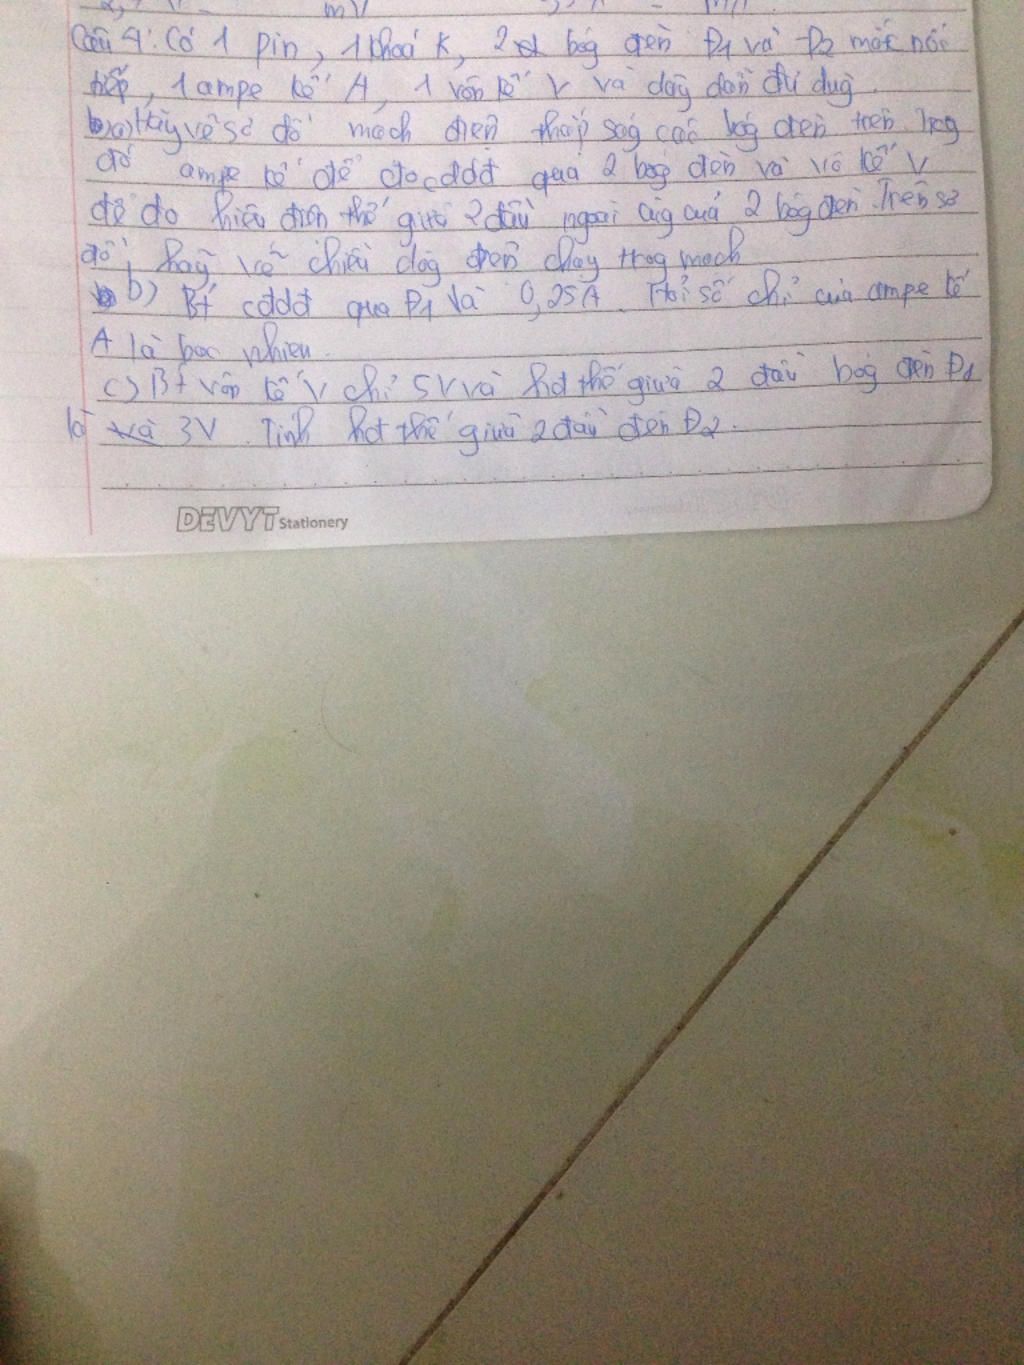 mV
Câu 4: Có 1 pin, 1 khoá K, 2 bóg đèn Đ1 và Đ2 mắc nối
tiếp, 1 ampe kế A, 1 vôn kế V và dây dẫn đủ dug
a) Hãy vẽ sơ đồ mạch điện thắp ság các bóg đèn trên. Trog
đó ampe kế để đo cđdđ qua 2 bóg đèn và vô kế V
để đo hiệu điện thế giữa 2 đầu ngoài cùg của 2 bóg đèn. Trên sơ
đồ, hãy vẽ chiều dòg điện chạy trog mạch
b) Bt cđdđ qua Đ1 là 0,25A. Hỏi số chỉ của ampe kế
A là bao nhieu
c) Bt vôn kế V chỉ 5V và hđt thế giữa 2 đầu bóg đèn Đ1
là 3V. Tính hđt thế giữa 2 đầu đèn Đ2.
DEVYT Stationery